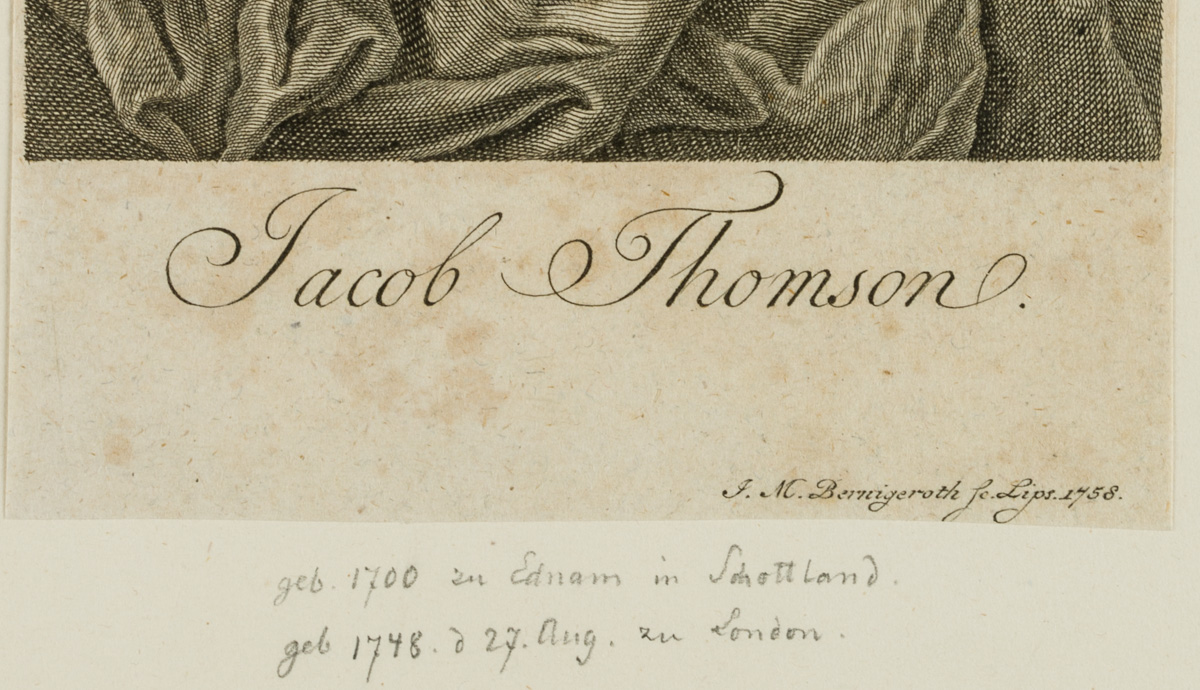 Jacob Thomson.
J. M. Bernigeroth sc. Lips. 1758.
geb. 1700 zu Ednam in Schottland.
geb 1748. d 27. Aug. zu London.